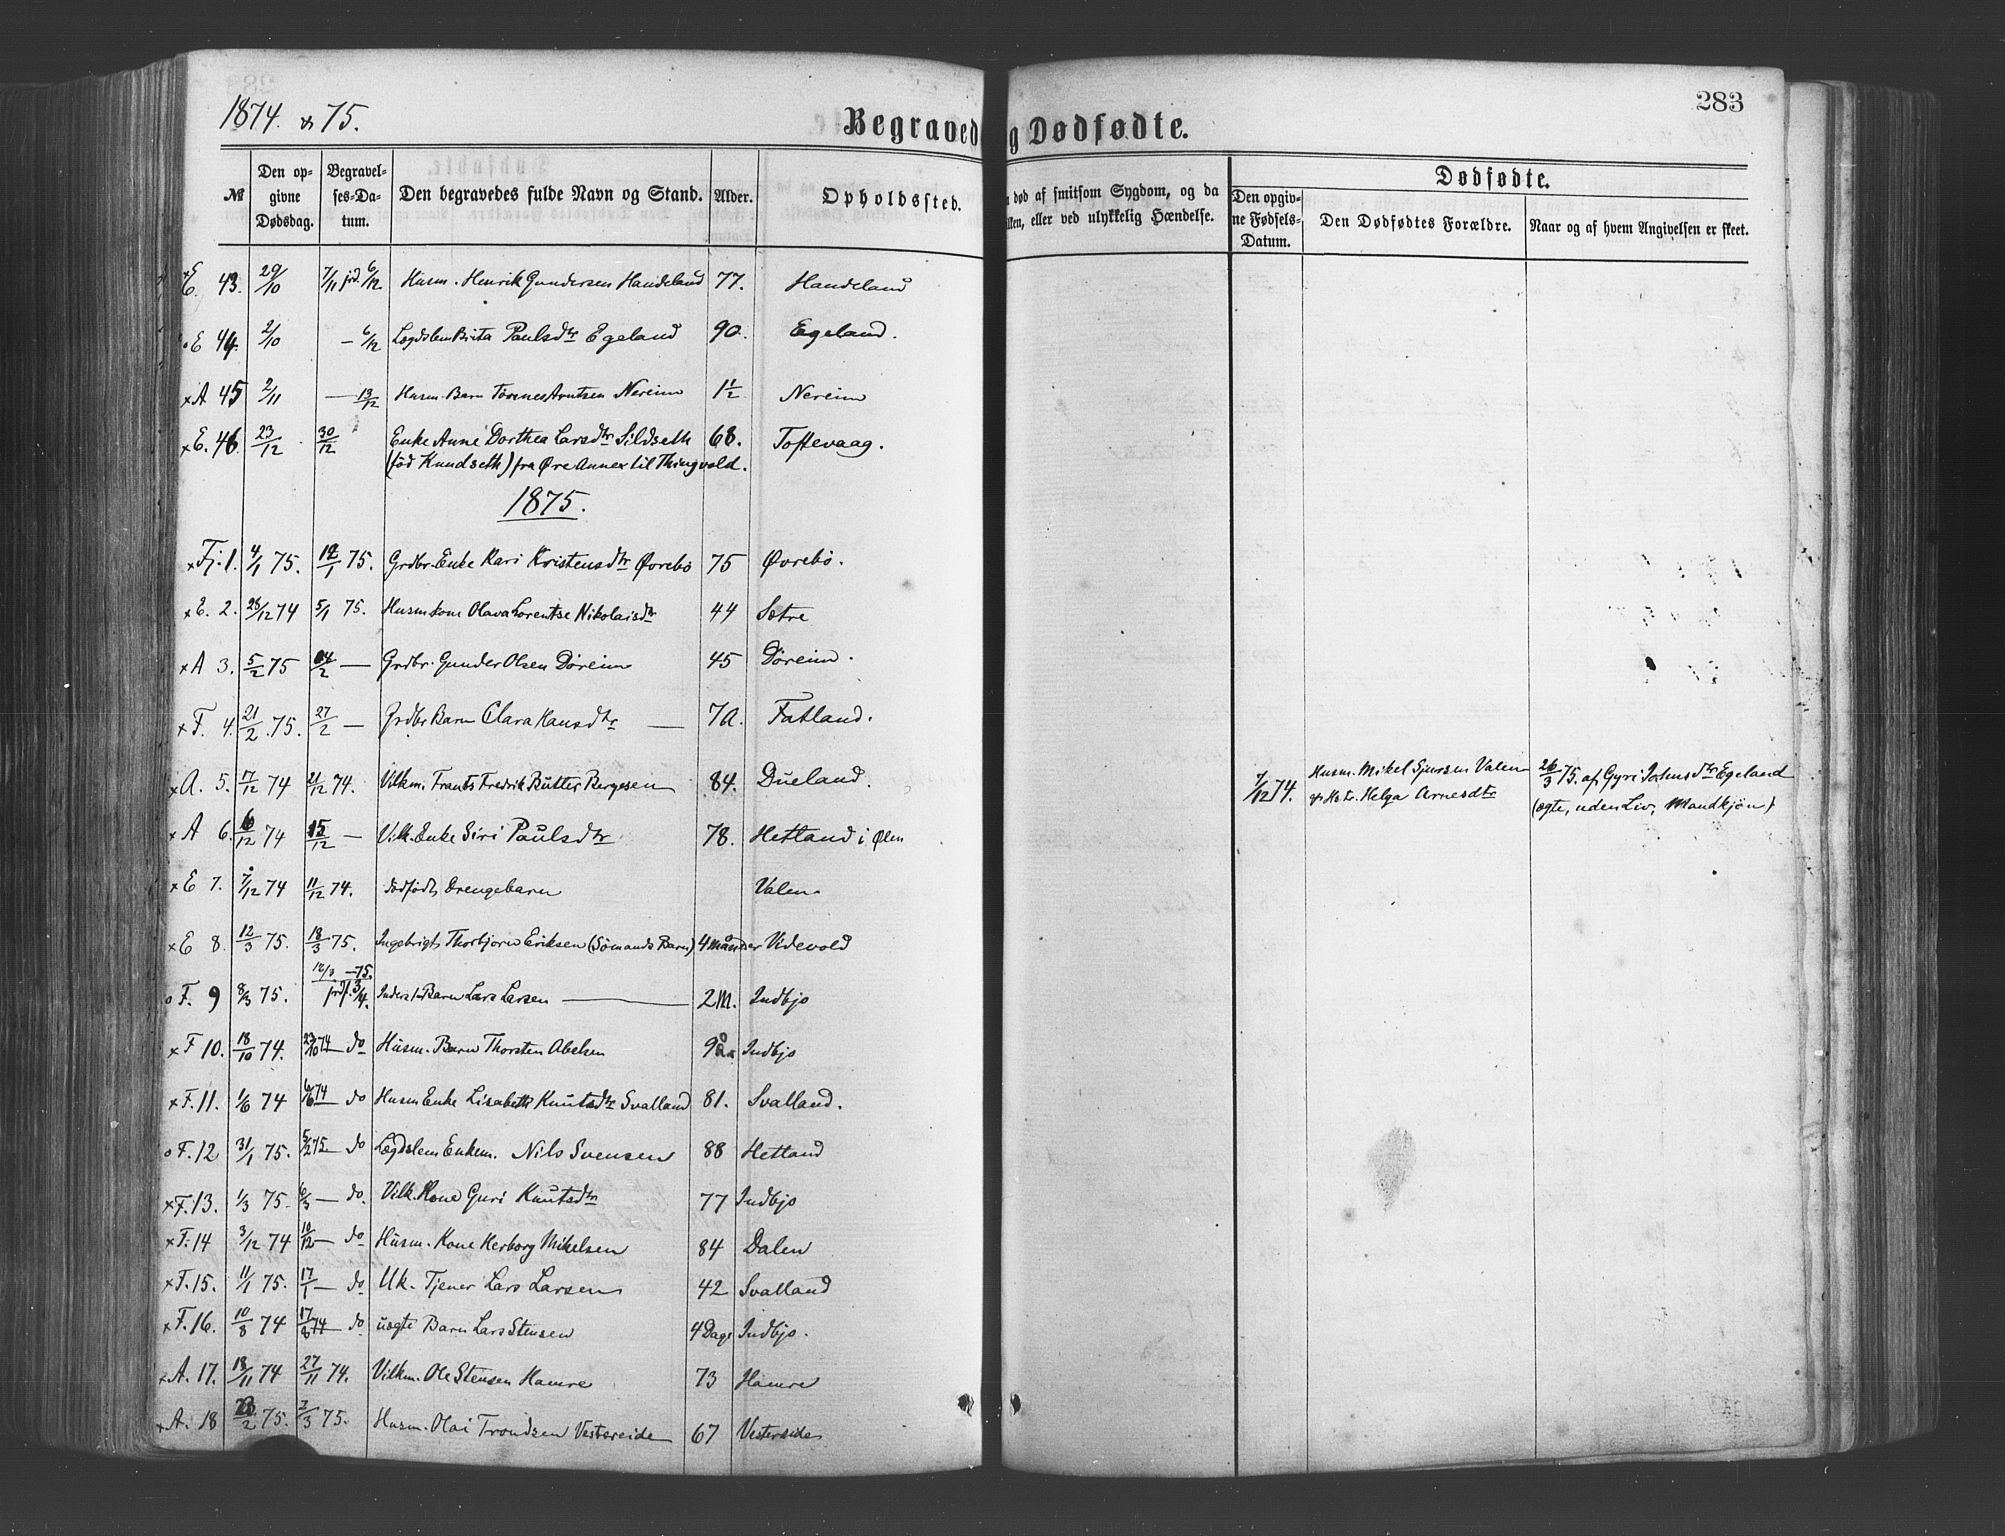 1874 & 75.
Begravede og Dødfødte.
283
№
Den opgivne Dødsdag.
Begravelses-Datum.
Den begravedes fulde Navn og Stand.
Alder.
Opholdssted.
død af smitsom Sygdom, og da
eller ved ulykkelig Hændelse.
Dødfødte.
Den opgivne Fødsels-Datum.
Den Dødfødtes Forældre.
Naar og af hvem Angivelsen er skeet.
E. 43. 29/10 7/11 jrd. 6/12 Husm. Henrik Gundersen Handeland 77. Handeland
E 44. 2/10 — 6/12 Lægdslem Brita Paulsdtr Egeland 90. Egeland.
A 45 2/11 — 13/12 Husm. Barn Tønnes Arntsen Nereim 1 1/2 Nereim
E. 46. 23/12 30/12 Enke Anne Dorthea Larsdtr Sildseth 68. Toftevaag.
(fød Knudseth) fra Øre Annex til Thingvold.
1875.
Fj. 1. 4/1 75. 12/1 75. Grdbr. Enke Kari Kristensdtr Øvrebø 75 Øvrebø.
E. 2. 28/12 74 5/1 75. Husmkone Olava Lorentse Nikolaisdtr 44 Sætre
A 3. 5/2 75 /2 — Grdbr. Gunder Olsen Døreim 45 Døreim.
F. 4. 21/2 75. 27/2 — Grdbr Barn Clara Hansdtr — 7 A. Fatland.
A. 5. 17/12 74 21/12 74. Vilkm. Frants Fredrik Bütter Bergesen 84. Dueland.
7/12 74. Husm. Mikel Sjursen Valen 26/3 75. af Gyri Johnsdtr Egeland
& Hstr. Helga Arnesdtr (ægte, uden Liv, Mandkjøn)
A 6. 6/12 74 15/12 — Vilk. Enke Siri Paulsdtr 78. Hetland i Ølen
E 7. 7/12 74 11/12 74. dødfødt Drengebarn Valen
E 8. 12/3 75. 18/3 75. Ingebrigt Thorbjørn Eriksen (Sømands Barn) 4 Måneder Videvold
F. 9 8/3 75. 12/3 — 75. jrdf. 3/4. Inderst Barn Lars Larsen — 2 M. Indbjo
F 10. 18/10 74. 23/10 74 — do Husm. Barn Thorsten Abelsen 9 Indbjo
F. 11. 1/6 74 6/6 74 — do Husm Enke Lisabeth Knutsdtr Svalland 81. Svalland.
F. 12 31/1 75. 5/2 75 — do Lægdslem Enkem. Nils Svensen 88 Hetland
F. 13. 1/3 75. 6/3 — do. Vilk. Kone Guri Knutsdtr 77 Indbjo
F. 14 3/12 74 10/12 — do Husm. Kone Herborg Mikelsen 84 Dalen
F. 15. 11/1 75. 17/1 — do Uk. Tjener Lars Larsen 42 Svalland
F. 16. 10/8 74 17/8 74 — do uægte Barn Lars Stensen 4 Dage Indbjo.
A. 17. 18/11 74 27/11 74. Vilkm. Ole Stensen Hamre 73 Hamre
A. 18 /2 75. 2/3 75. Husm. Olai Trondsen Vestereide 67 Vestereide